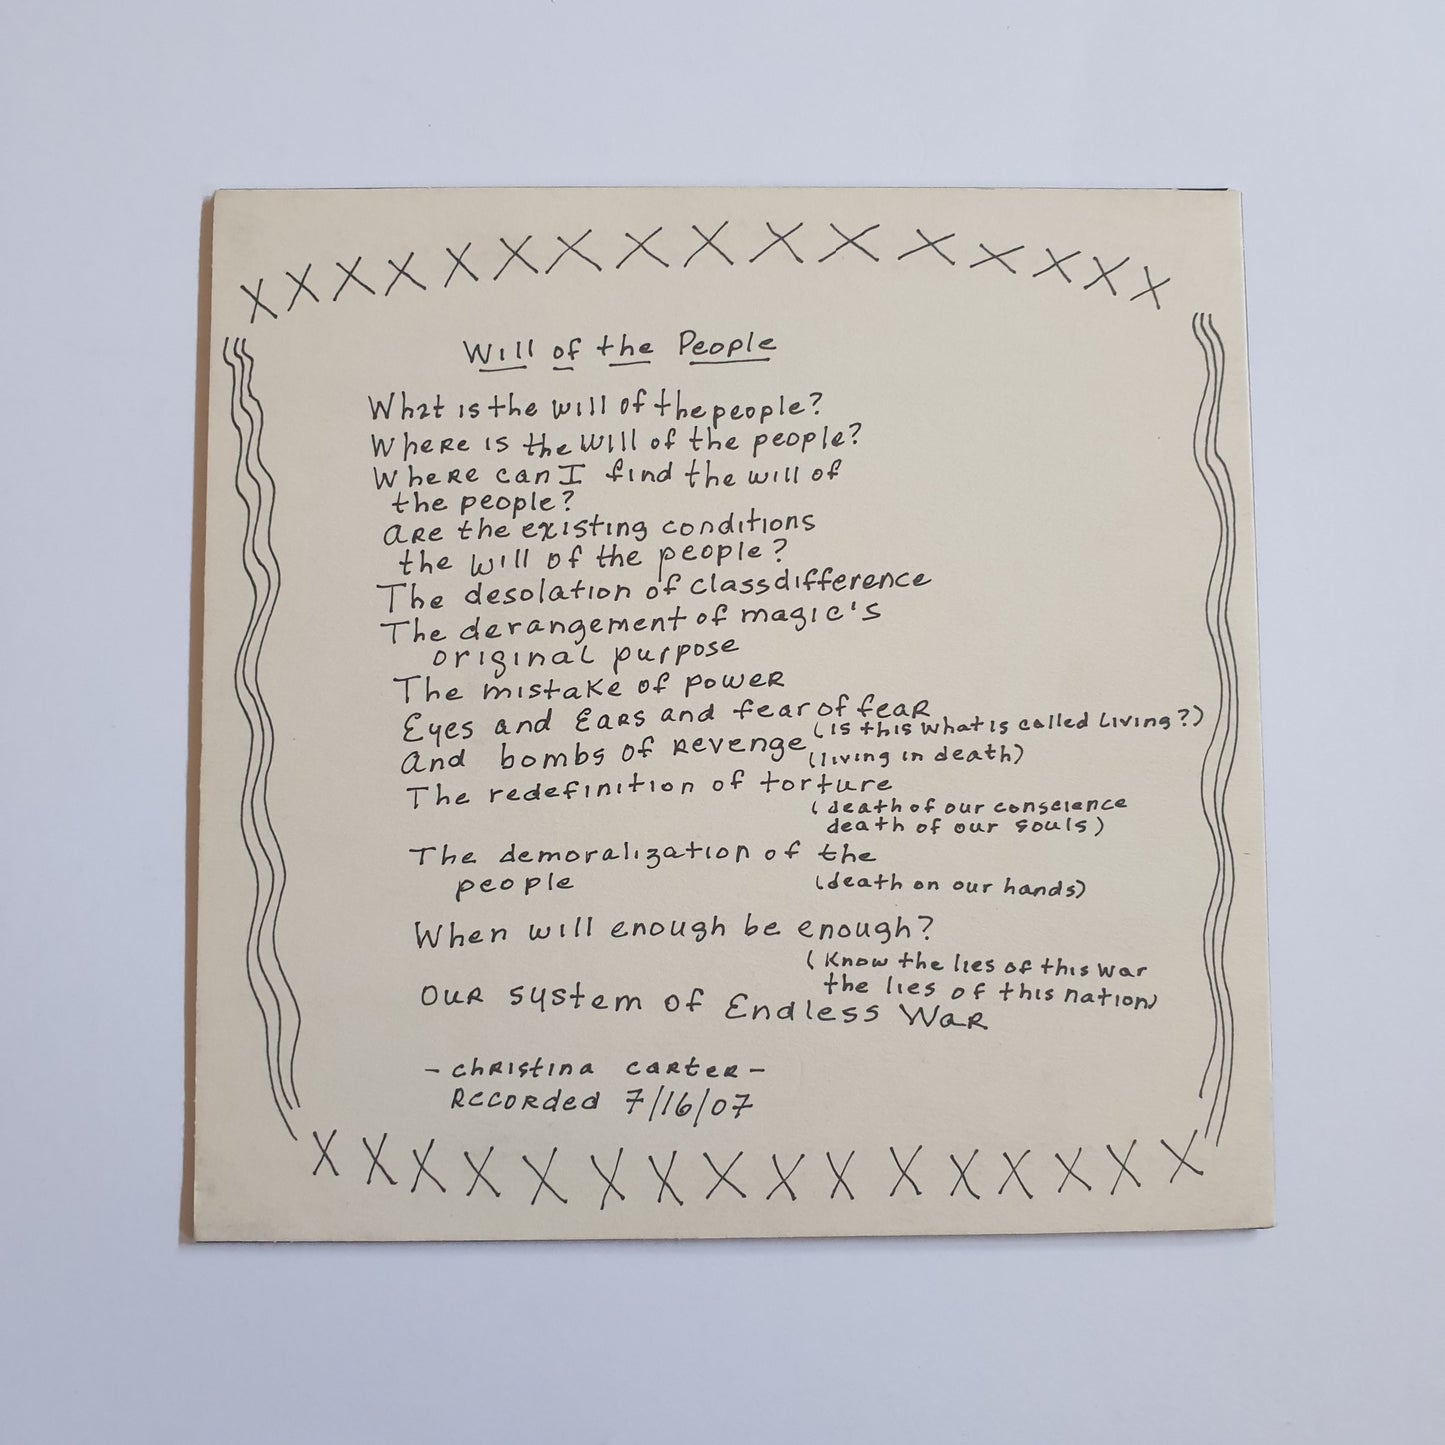 Will of the People
What is the will of the people?
Where is the will of the people?
Where can I find the will of
the people?
are the existing conditions
the will of the people?
The desolation of class difference
The derangement of magic's
original purpose
The mistake of power
Eyes and Ears and fear of fear
(is this what is called living?)
And bombs of revenge
(living in death)
The redefinition of torture
(death of our conscience
death of our souls)
The demoralization of the
people
(death on our hands)
When will enough be enough?
(Know the lies of this war
the lies of this nation)
Our system of Endless War
- Christina Carter -
Recorded 7/16/07